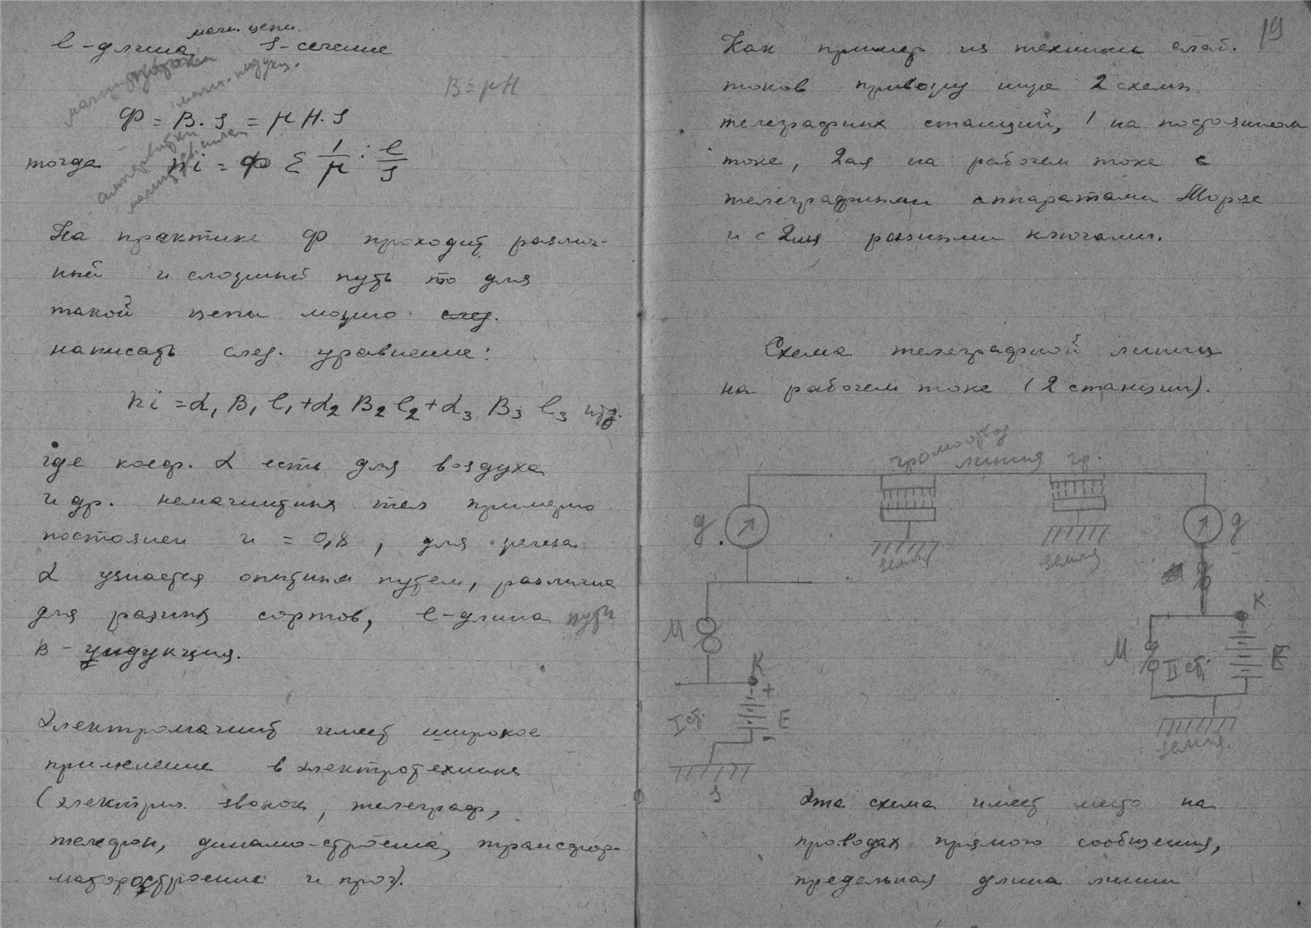 магн. цепи
l - длина S - сечение
магн. индукц.
B = μH
Ф = B. S = μ H. S
тогда ni = Ф Σ 1/μ : l/S
На практике Ф проходит различ-
ный и сложный путь то для
такой цепи можно след.
написать след. уравнение:
ni = α₁ B₁ l₁ + α₂ B₂ l₂ + α₃ B₃ l₃ итд.
где коеф. α есть для воздуха
и др. немагнитных тел примерно
постоянен и = 0,8, для железа
α узнается опытным путем, различна
для разных сортов, l - длина пути
B - индукция.
Электромагнит имеет широкое
применение в электротехнике
(электрич. звонок, телеграф,
телефон, динамо-строение, трансфор-
маторостроение и проч).
19
Как пример из техники слаб.
токов привожу ниже 2 схемы
телеграфных станций, 1 на постоянном
токе, 2ая на рабочем токе с
телеграфными аппаратами Морзе
и с 2мя разными ключами.
Схема телеграфной линии
на рабочем токе (2 станции).
громоотвод
линия гр.
g g
земля земля
M K M K
I ст. + E II ст. E
з земля.
Эта схема имеет место на
проводах прямого сообщения,
предельная длина линии